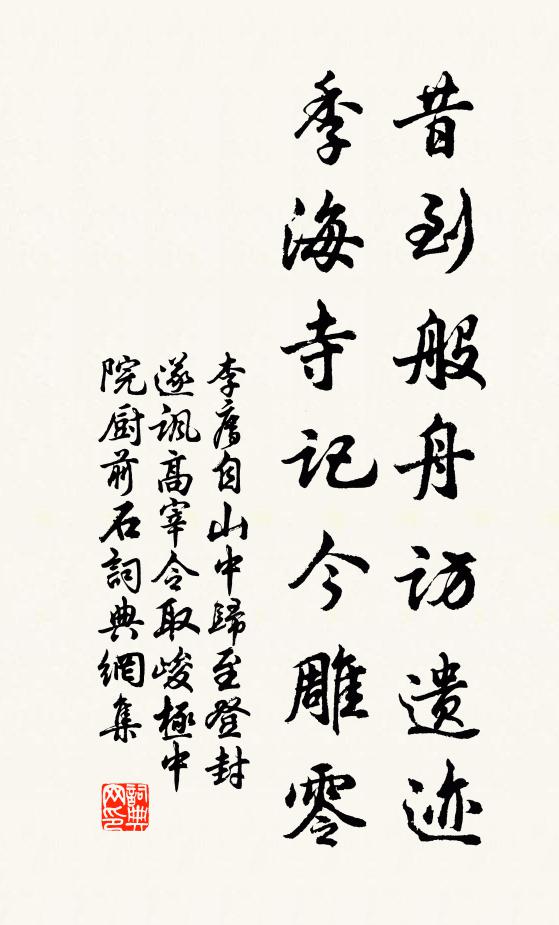 昔到般舟访遗迹
季海寺记今雕零
李廌自山中歸至登封
遂諷高宰令取峻極中
院厨前石詞典網集
詞典网印